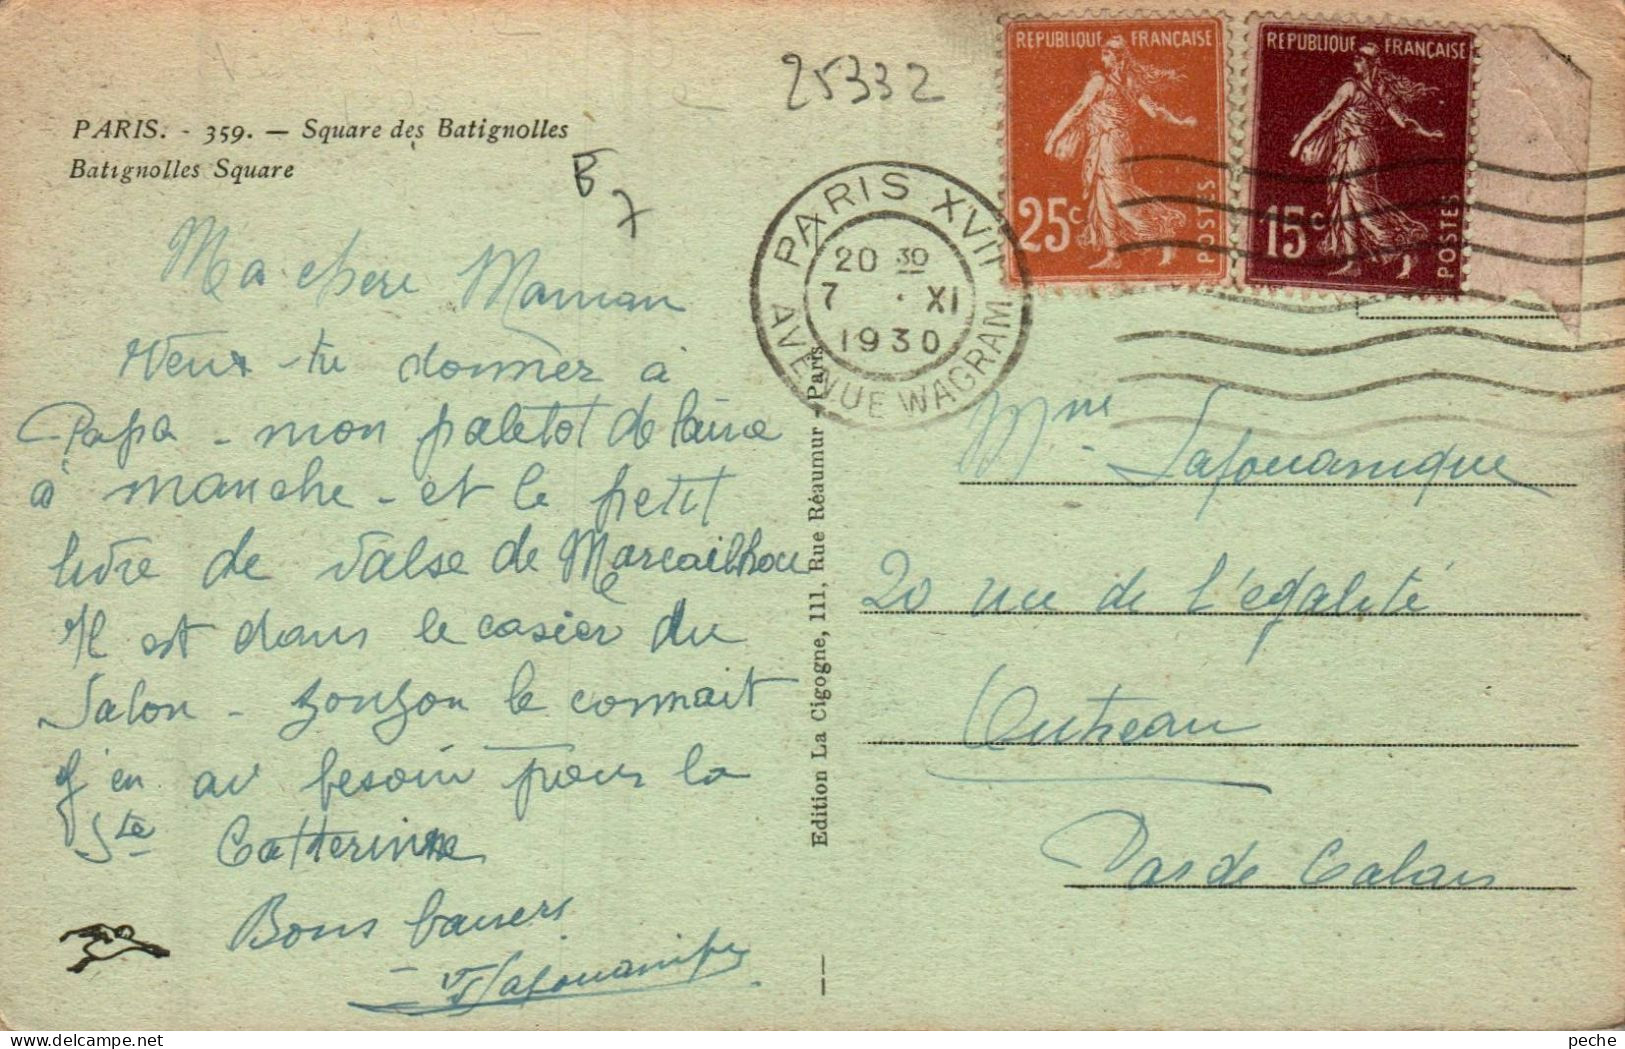 25332
PARIS. - 359. — Square des Batignolles
Batignolles Square
B
7
Ma chère Maman
Veux-tu donner à
Papa - mon paletot de laine
à manche - et le petit
livre de Valse de Marcailhou
Il est dans le casier du
Salon - zonzon le connait
J'en ai besoin pour la
Ste Catherine
Bons baisers
Edition La Cigogne, 111, Rue Réaumur - Paris
REPUBLIQUE FRANÇAISE
25c
POSTES
REPUBLIQUE FRANÇAISE
15c
POSTES
PARIS XVII
20 30
7 · XI
1930
AVENUE WAGRAM
Mme Lafouanique
20 rue de l'égalité
Outreau
Pas de Calais
peche